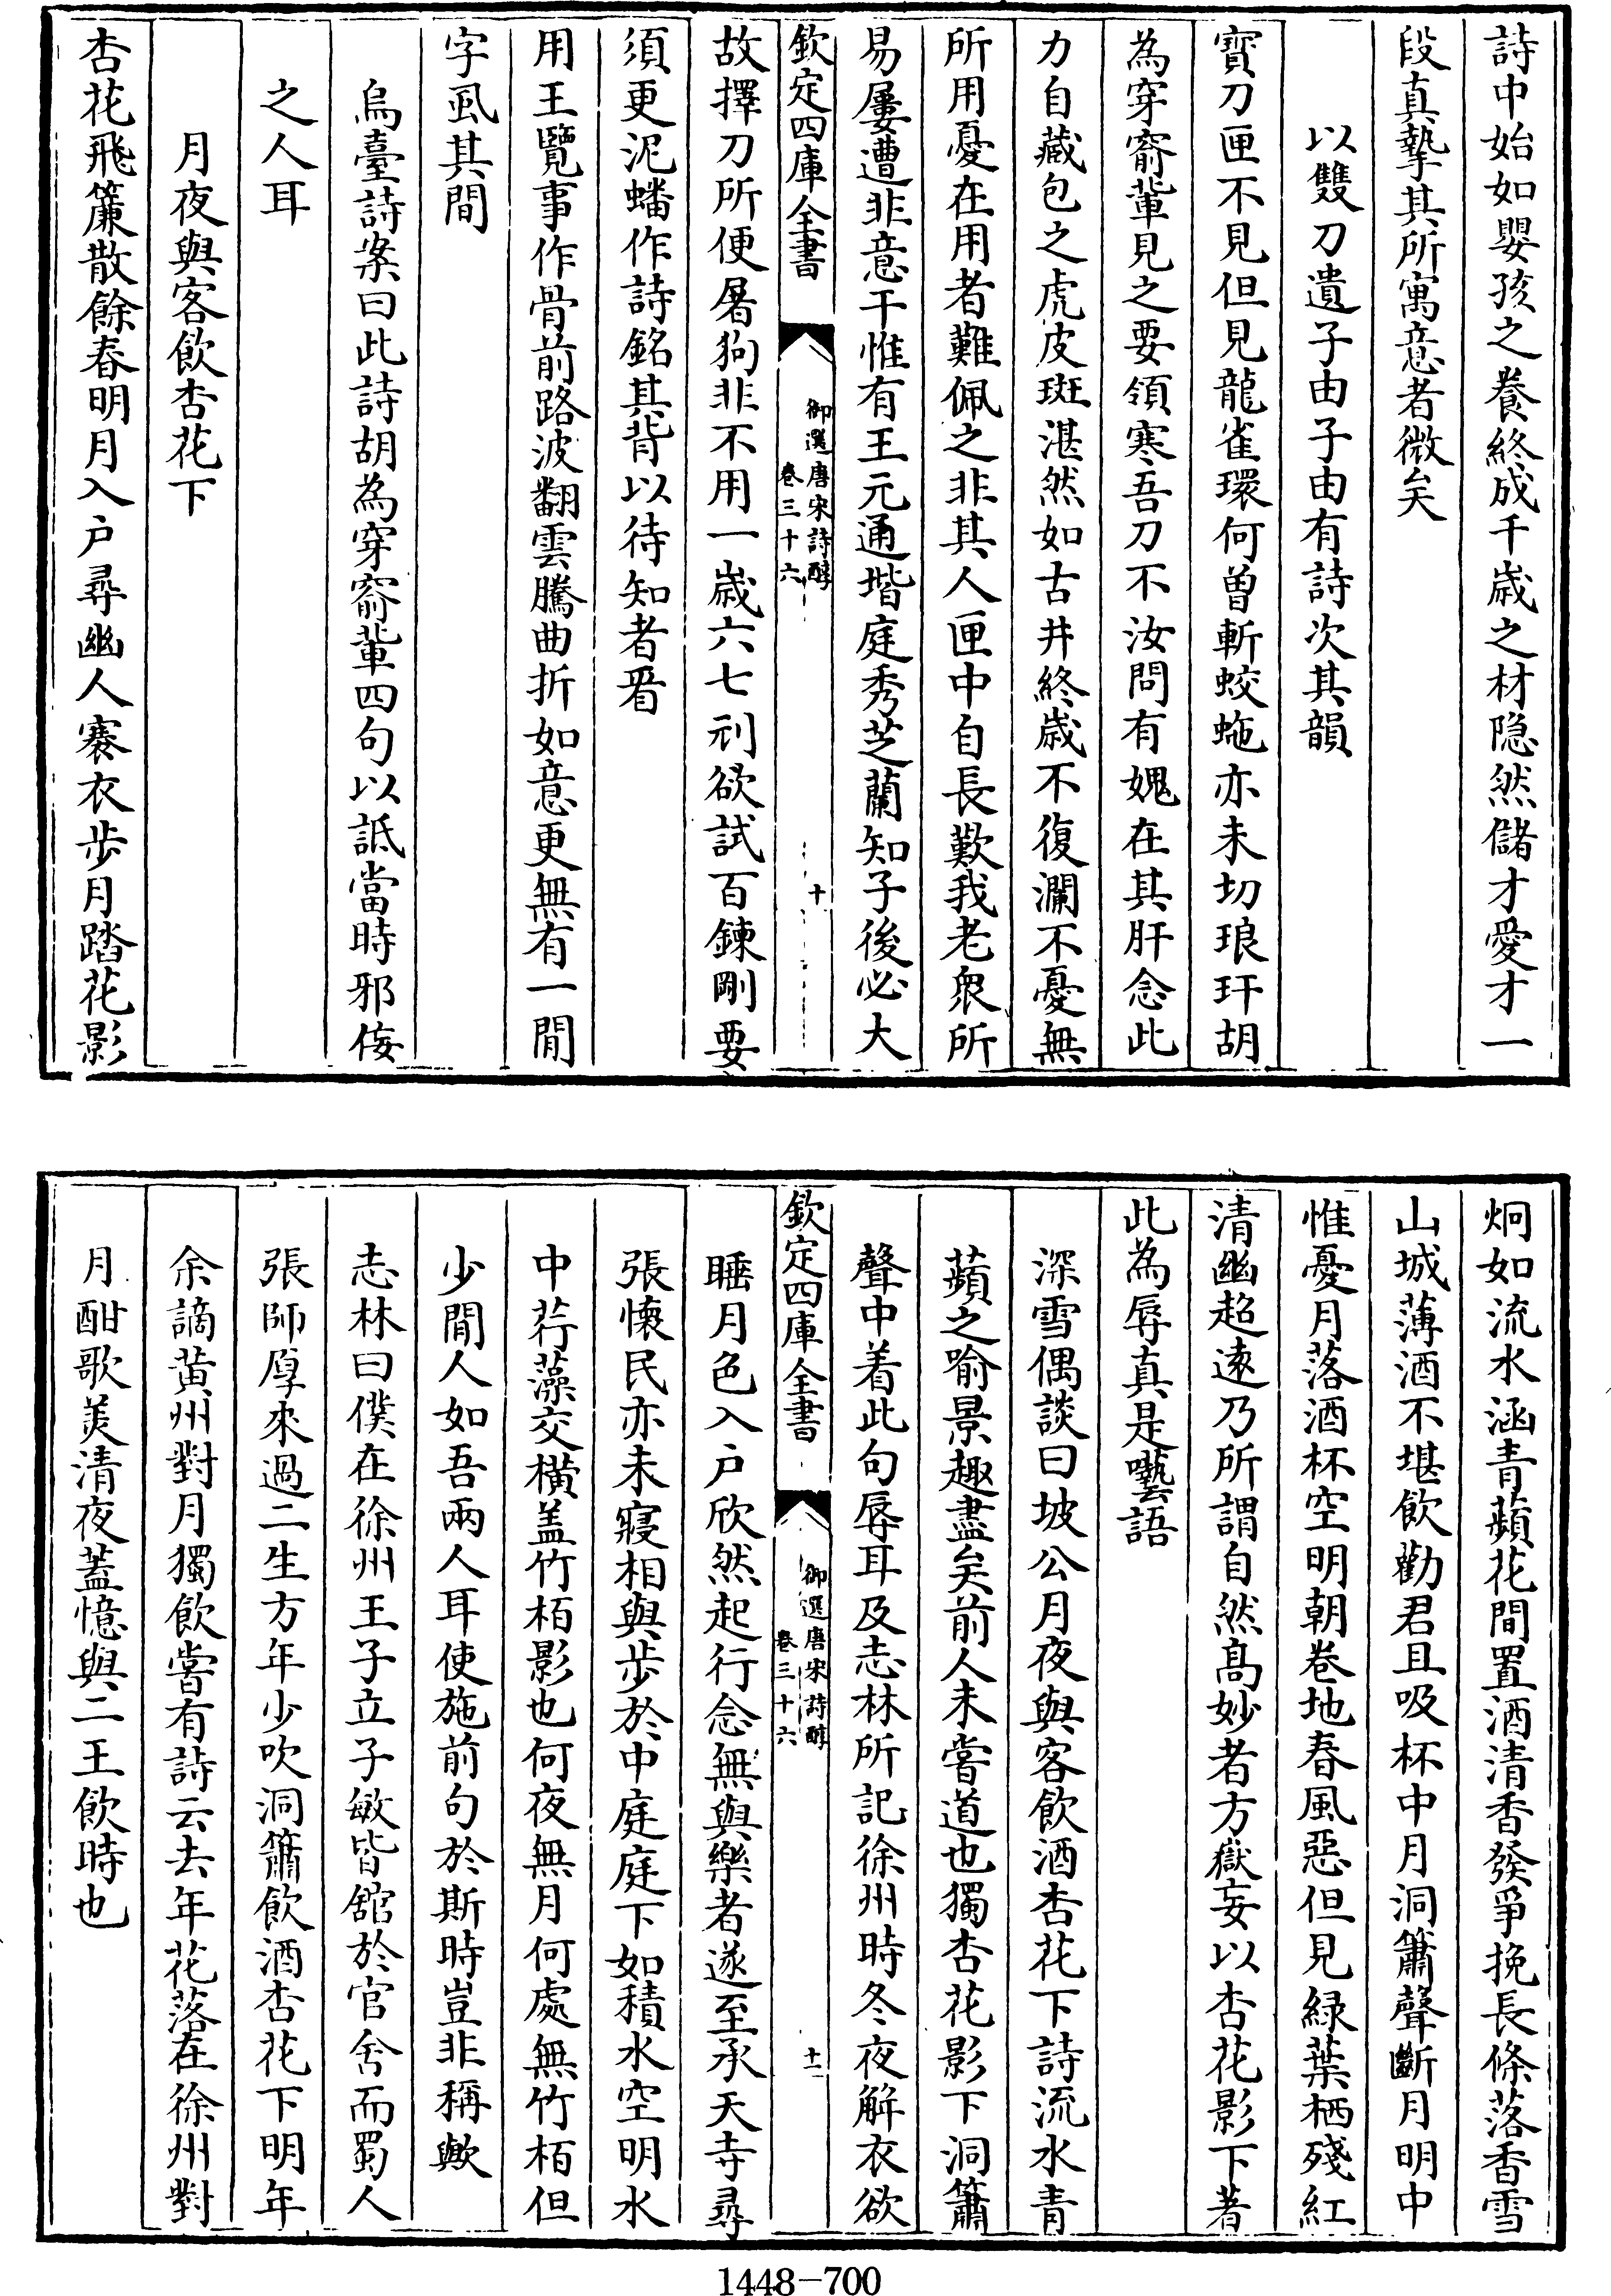 詩中始如嬰孩之養終成千歲之材隐然儲才愛才一
段真摯其所寓意者微矣
以雙刀遺子由子由有詩次其韻
寳刀匣不見但見龍雀環何曽斬蛟虵亦未切琅玕胡
為穿窬輩見之要領寒吾刀不汝問有媿在其肝念此
力自藏包之虎皮斑湛然如古井終歲不復瀾不憂無
所用憂在用者難佩之非其人匣中自長歎我老衆所
易屢遭非意干惟有王元通堦庭秀芝蘭知子後必大
欽定四庫全書
御選唐宋詩醇
卷三十六
十
故擇刀所便屠狗非不用一歲六七刓欲試百鍊剛要
須更泥蟠作詩銘其背以待知者㸔
用王覽事作骨前路波翻雲騰曲折如意更無有一閒
字虱其間
烏臺詩案曰此詩胡為穿窬輩四句以詆當時邪佞
之人耳
月夜與客飲杏花下
杏花飛簾散餘春明月入户尋幽人褰衣步月踏花影
炯如流水涵青蘋花間置酒清香發爭挽長條落香雪
山城薄酒不堪飲勸君且吸杯中月洞簫聲斷月明中
惟憂月落酒杯空明朝卷地春風惡但見緑葉栖殘紅
清幽超遠乃所謂自然髙妙者方嶽妄以杏花影下著
此為辱真是囈語
深雪偶談曰坡公月夜與客飲酒杏花下詩流水青
蘋之喻景趣盡矣前人未嘗道也獨杏花影下洞簫
聲中着此句辱耳及志林所記徐州時冬夜解衣欲
欽定四庫全書
御選唐宋詩醇
卷三十六
十一
睡月色入户欣然起行念無與樂者遂至承天寺尋
張懐民亦未寢相與步於中庭庭下如積水空明水
中荇藻交横盖竹栢影也何夜無月何處無竹栢但
少閒人如吾兩人耳使施前句於斯時豈非稱歟
志林曰僕在徐州王子立子敏皆舘於官舍而蜀人
張師厚來過二生方年少吹洞簫飲酒杏花下明年
余謫黄州對月獨飲嘗有詩云去年花落在徐州對
月酣歌美清夜蓋憶與二王飲時也
1448-700